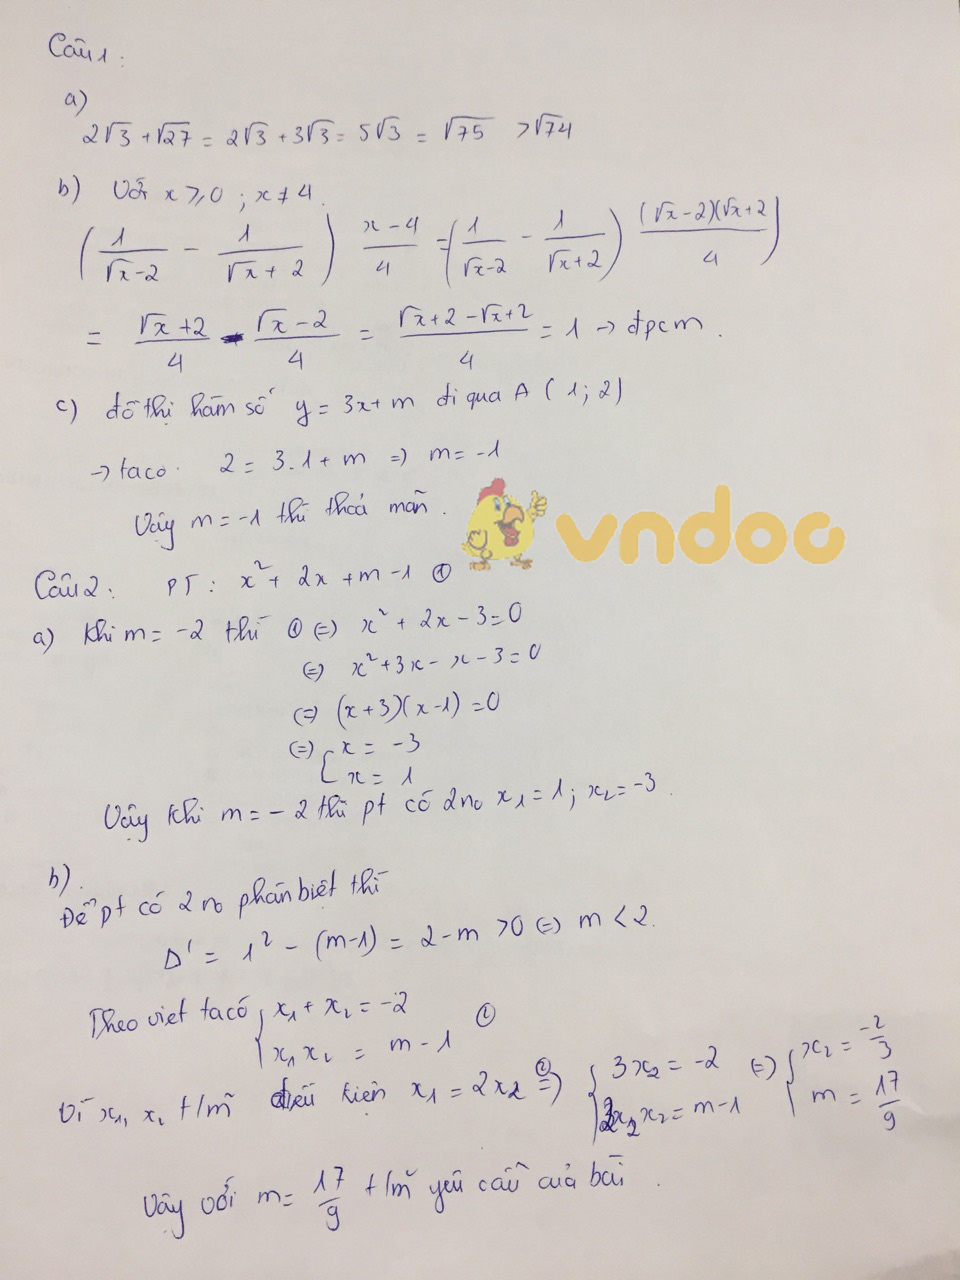 Câu 1:
a)
2√3 + √27 = 2√3 + 3√3 = 5√3 = √75 > √74
b) Với x ≥ 0 ; x ≠ 4.
(1/(√x-2) - 1/(√x+2)) (x-4)/4 = (1/(√x-2) - 1/(√x+2)) ((√x-2)(√x+2)/4)
= (√x+2)/4 - (√x-2)/4 = (√x+2-√x+2)/4 = 1 → đpcm.
c) đồ thị hàm số y = 3x+m đi qua A (1; 2)
→ ta có. 2 = 3.1 + m => m = -1
Vậy m = -1 thì thoả mãn.
vndoc
Câu 2: PT: x² + 2x + m - 1 ①
a) Khi m = -2 thì ① (=) x² + 2x - 3 = 0
(=) x² + 3x - x - 3 = 0
(=) (x+3)(x-1) = 0
(=) [x = -3
x = 1
Vậy khi m = -2 thì pt có 2 no x₁ = 1; x₂ = -3.
b).
Để pt có 2 no phân biệt thì
Δ' = 1² - (m-1) = 2 - m > 0 (=) m < 2.
Theo viet ta có { x₁ + x₂ = -2
x₁ x₂ = m - 1
Vì x₁, x₂ t/m điều kiện x₁ = 2x₂ => { 3x₂ = -2 (=) { x₂ = -2/3
2x₂x₂ = m-1 m = 17/9
Vậy với m = 17/9 t/m yêu cầu của bài.